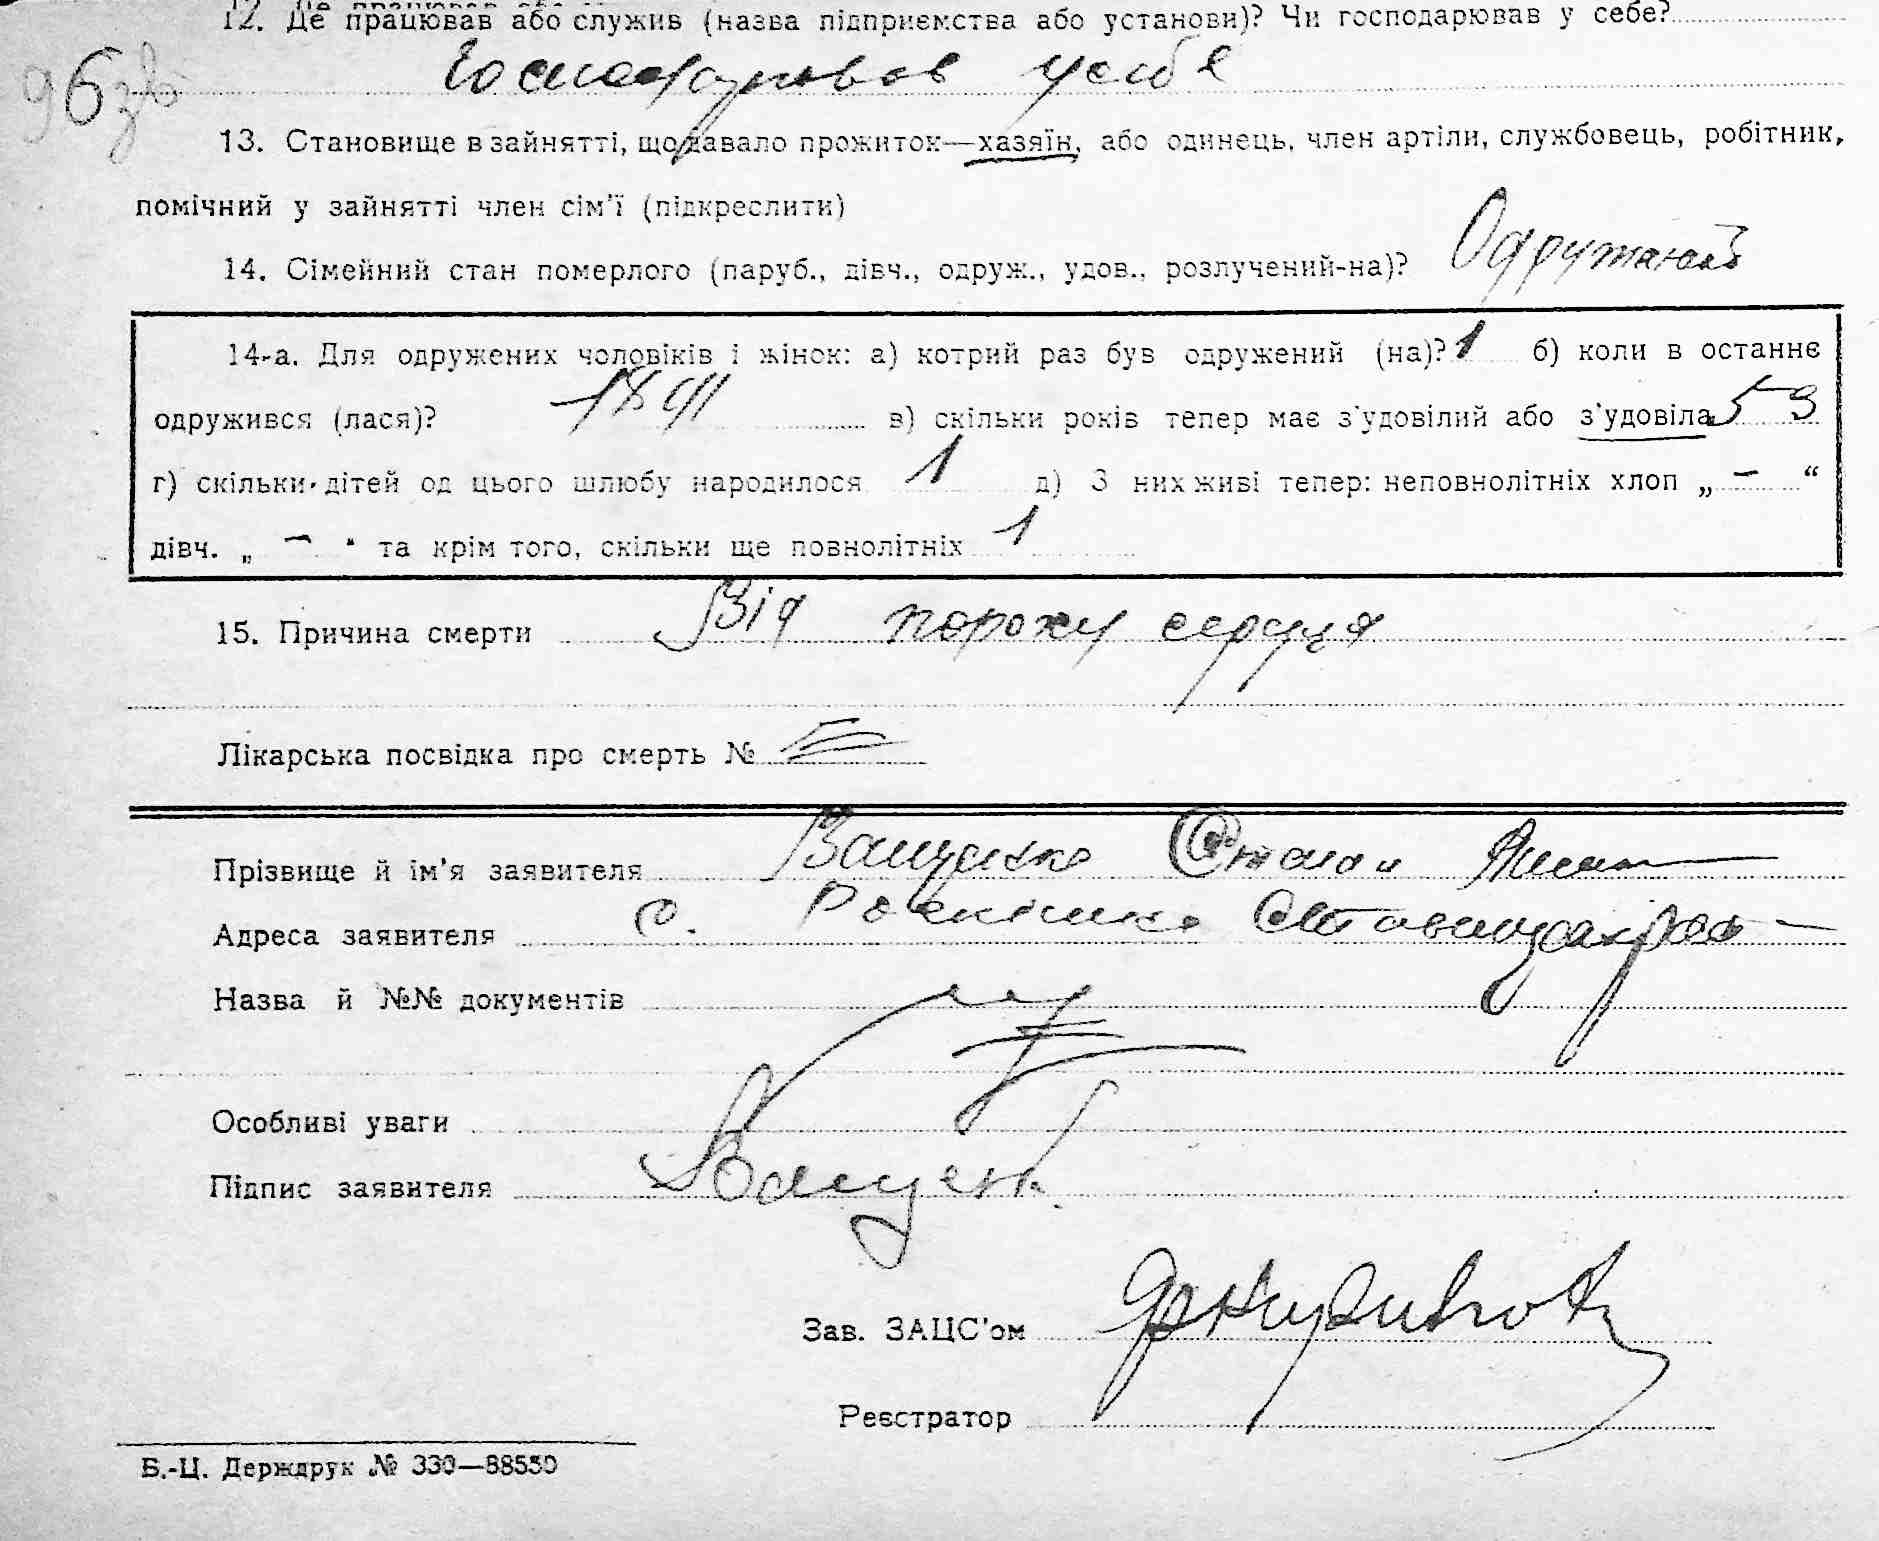 12. Де працював або служив (назва підприємства або установи)? Чи господарював у себе?
96зв
Господарював у себе
13. Становище в зайнятті, що давало прожиток—хазяїн, або одинець, член артіли, службовець, робітник,
помічний у зайнятті член сім'ї (підкреслити)
14. Сімейний стан померлого (паруб., дівч., одруж., удов., розлучений-на)? Одружений
14-а. Для одружених чоловіків і жінок: а) котрий раз був одружений (на)? 1 б) коли в останнє
одружився (лася)? 1891 в) скільки років тепер має з'удовілий або з'удовіла 53
г) скільки дітей од цього шлюбу народилося 1 д) З них живі тепер: неповнолітніх хлоп „ — “
дівч. „ — “ та крім того, скільки ще повнолітніх 1
15. Причина смерти Від пороку серця
Лікарська посвідка про смерть №
Прізвище й ім'я заявителя Ващенко Степан
Адреса заявителя с. Розкішна Ставищанськ рай
Назва й №№ документів
Особливі уваги
Підпис заявителя Ващенк
Зав. ЗАЦС'ом
Реєстратор
Б.-Ц. Держдрук № 330—88550